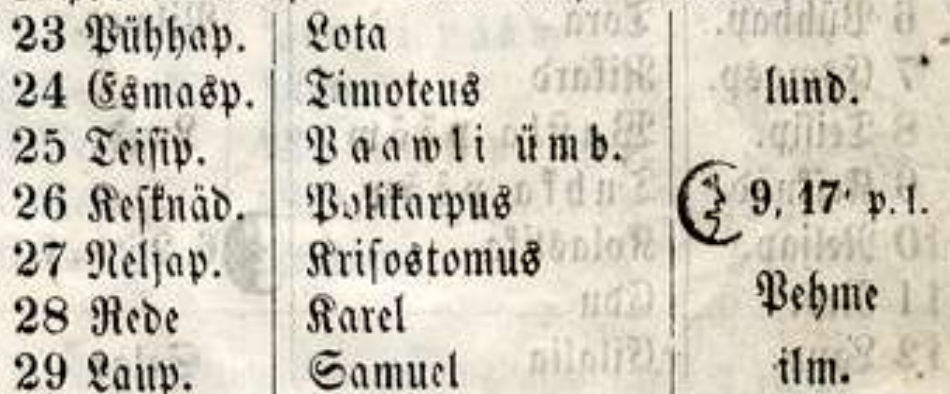 23 Pühhap. Lota
24 Esmasp. Timoteus lund.
25 Teisip. Paawli ümb.
26 Kesknäd. Polikarpus 9, 17' p. l.
27 Neljap. Krisostomus
28 Rede Karel Pehme
29 Laup. Samuel ilm.